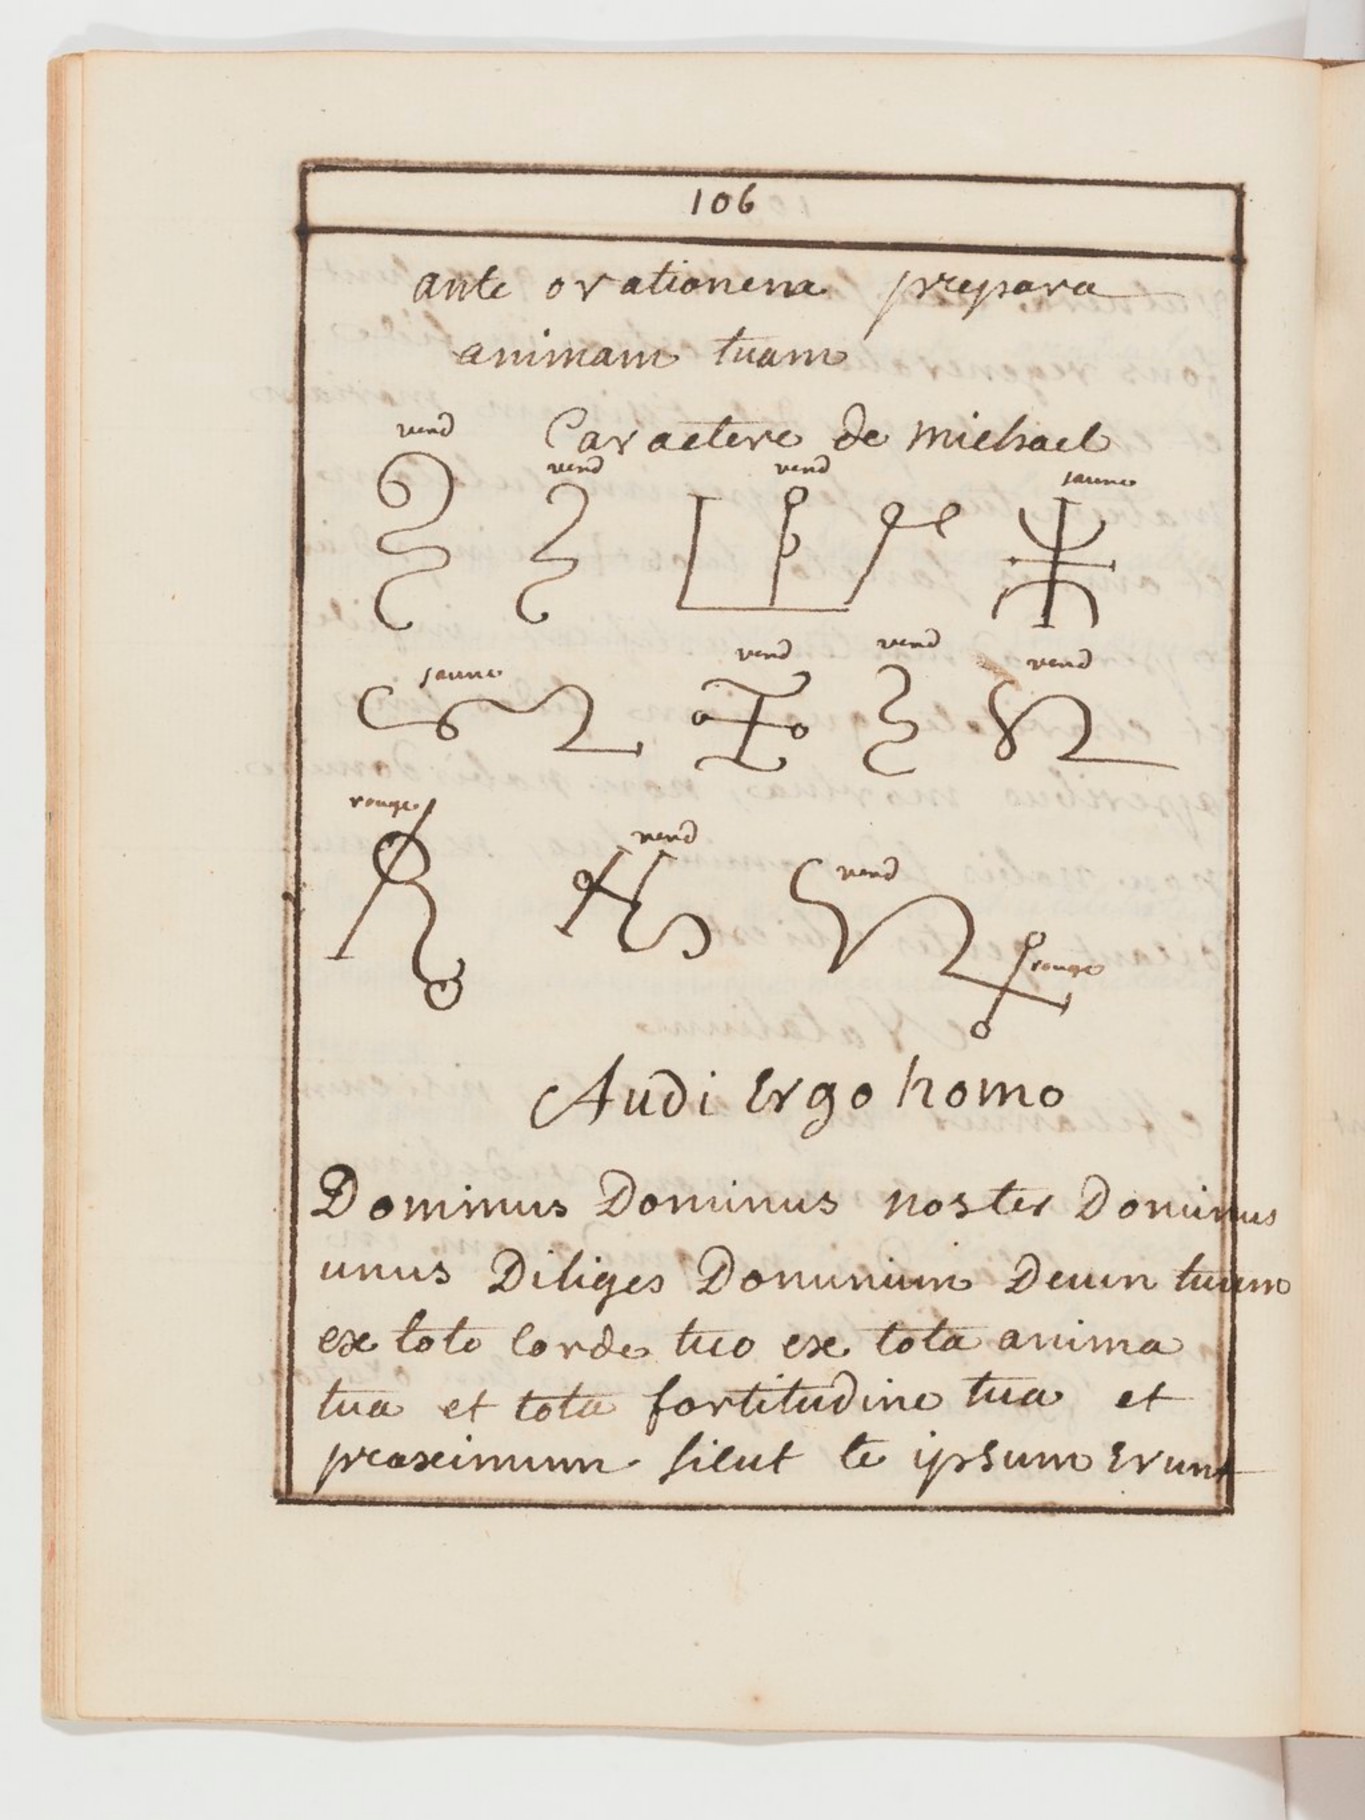 106
ante orationem prepara
animam tuam
Caractere de michael
verd verd verd jaune
jaune verd verd verd
rouge verd verd rouge
Audi Ergo homo
Dominus Dominus noster Dominus
unus Diliges Dominum Deum tuum
ex toto Corde tuo ex tota anima
tua et tota fortitudine tua et
proximum sicut te ipsum Erunt